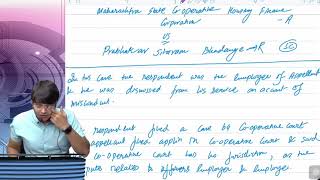 Maharashtra State Co-operative Housing Finance
Corporation - A
VS
Prabhakar Sitaram Bhadange → R SC
In this case the respondent was the employee of Appellant
& he was dismissed from his service on account of
misconduct.
respondent filed a case b4 Co-operative Court
appellant filed appln in Co-operative Court & said
co-operative court has no jurisdiction, as the
relates to affairs Employer & Employee